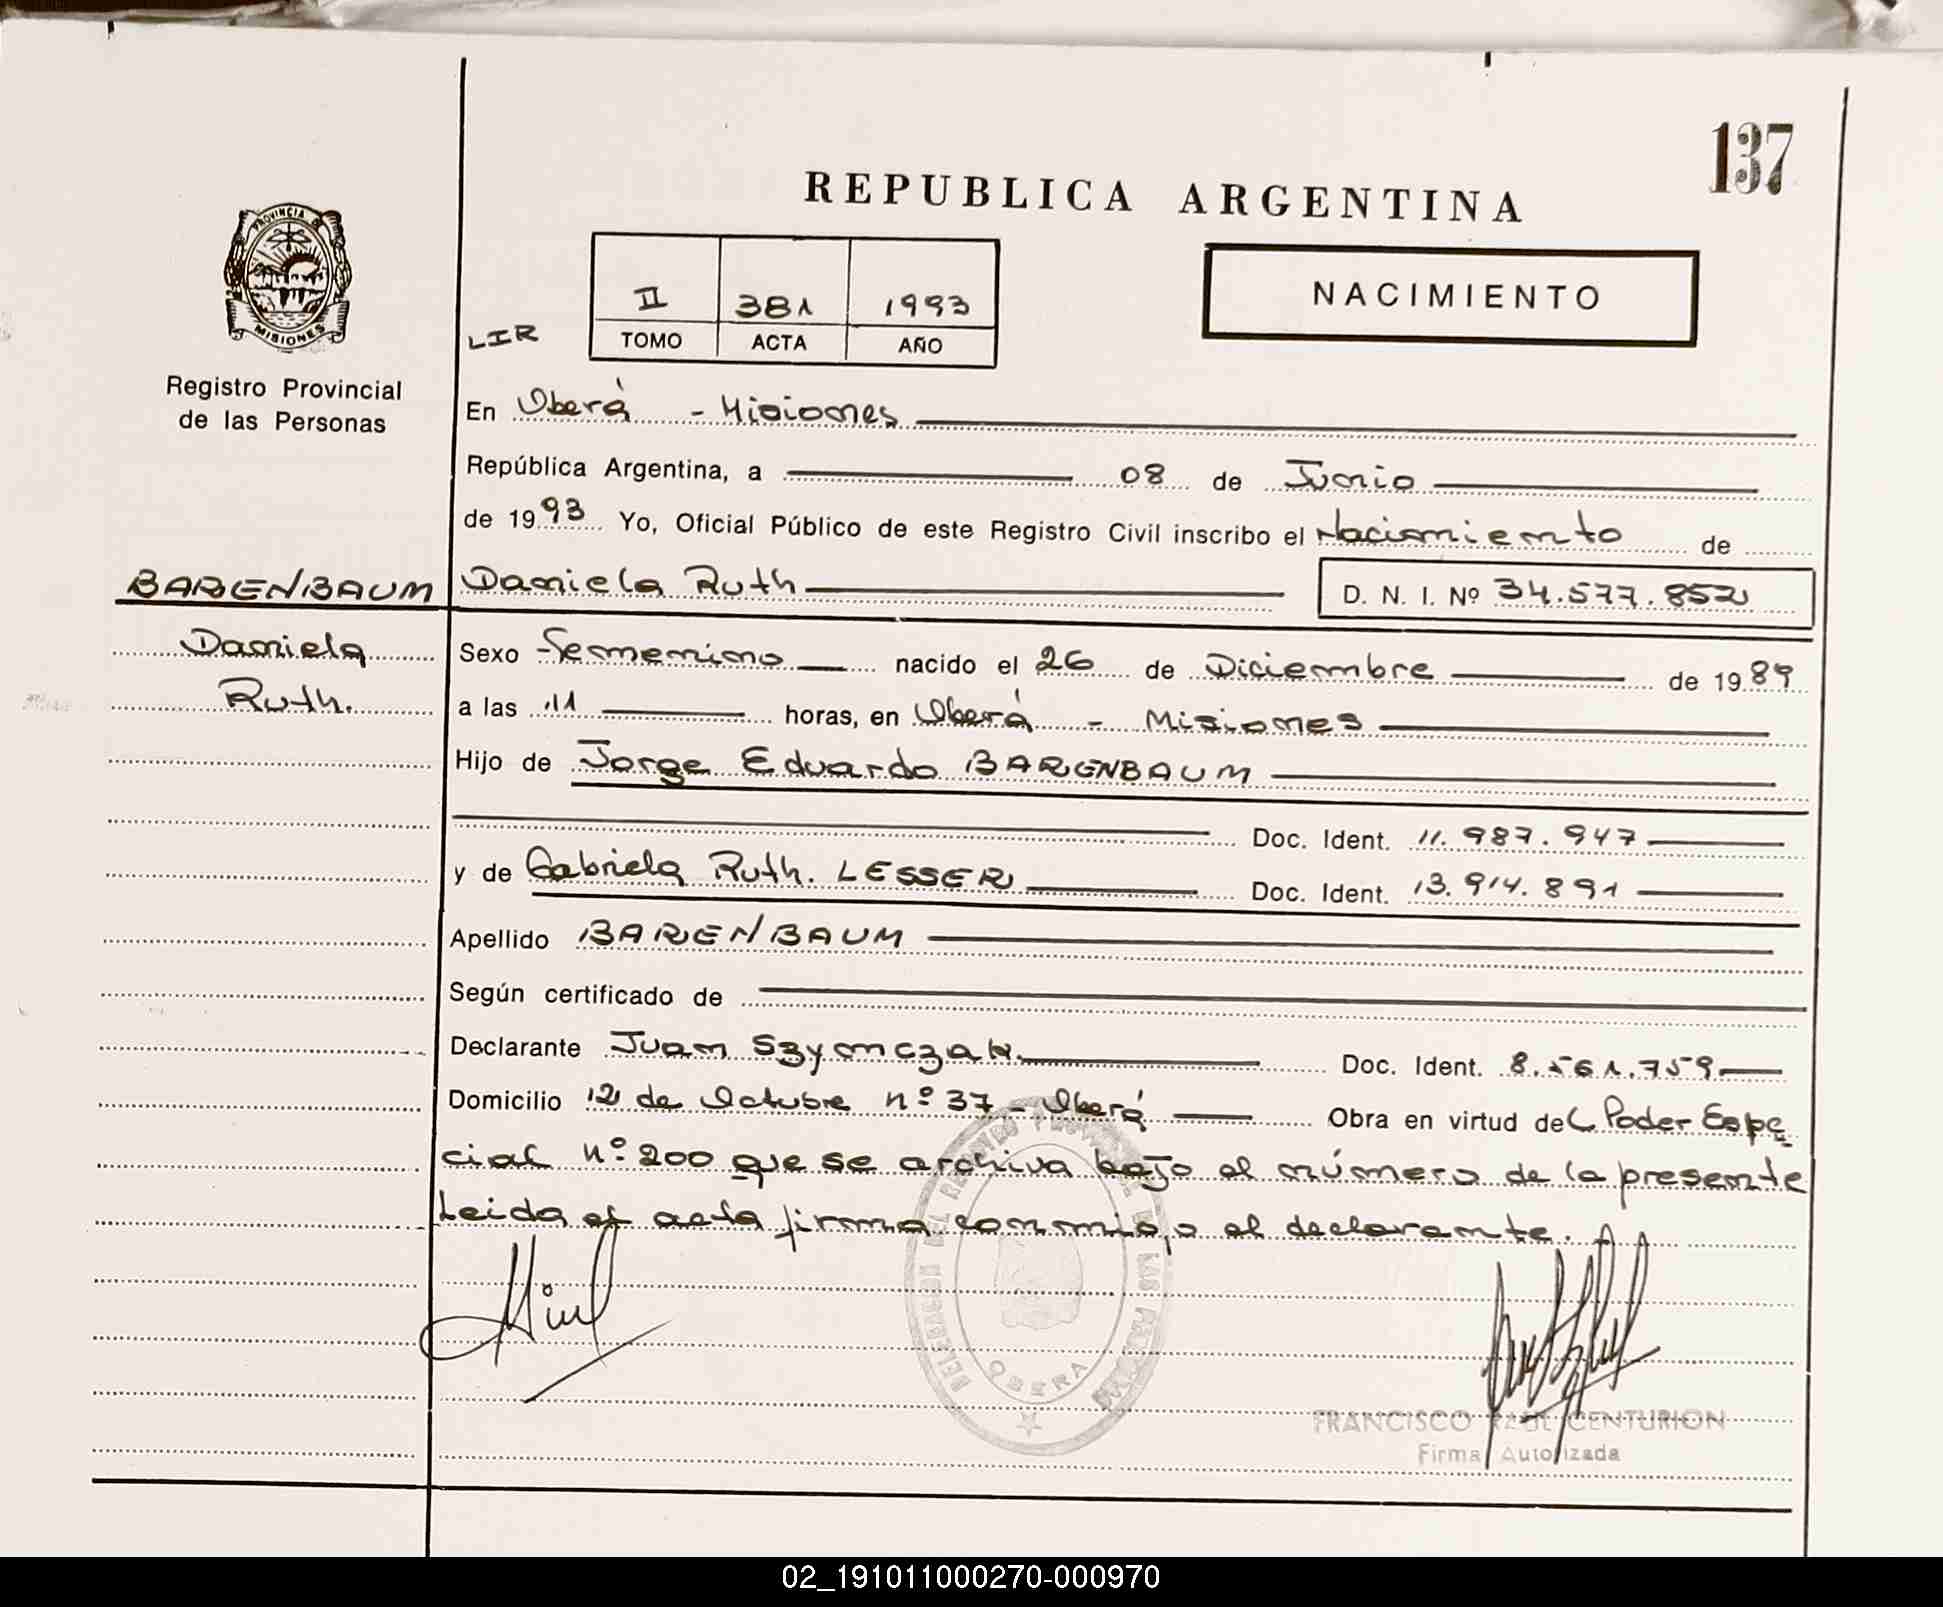 137
REPUBLICA ARGENTINA
PROVINCIA DE
MISIONES
NACIMIENTO
II 381 1993
LIR TOMO ACTA AÑO
Registro Provincial
de las Personas
En Oberá - Misiones
República Argentina, a 08 de Junio
de 1993 Yo, Oficial Público de este Registro Civil inscribo el Nacimiento de
BARENBAUM Daniela Ruth D. N. I. Nº 34.577.852
Daniela Sexo Femenino nacido el 26 de Diciembre de 1989
Ruth. a las 11 horas, en Oberá - Misiones
Hijo de Jorge Eduardo BARENBAUM
Doc. Ident. 11.987.947
y de Gabriela Ruth. LESSER Doc. Ident. 13.914.891
Apellido BARENBAUM
Según certificado de
Declarante Juan Szymczak. Doc. Ident. 8.561.759
Domicilio 12 de Octubre nº 37 - Oberá Obra en virtud del Poder Espe
cial nº 200 que se archiva bajo el número de la presente
Leida el acta firma conmigo el declarante.
DELEGACION DEL REGISTRO PROVINCIAL DE LAS PERSONAS
OBERA
FRANCISCO RAUL CENTURION
Firma Autorizada
02_191011000270-000970